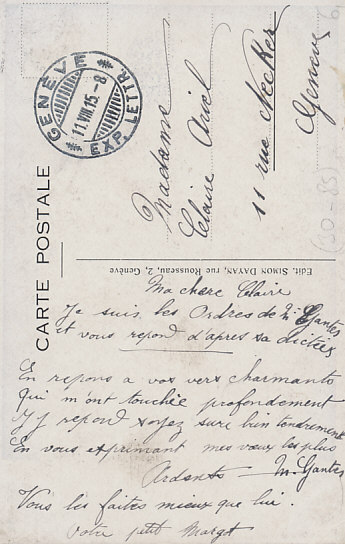 GENÈVE
11.VIII.15-8
EXP. LETTR.
CARTE POSTALE
Madame
Claire Ariel
11 rue Necker
Genève
(30-83)
Edit. SIMON DAYAN, rue Rousseau, 2, Genève
Ma chere Claire
Je suis les Ordres de M. Gantes
et vous repond d'apres sa dictées
En repons a vos vers charmants
Qui m'ont touchée profondement
J'y repond soyez sure bien tendrement
En vous exprimant mes vœux les plus
Ardents — M. Gantes
Vous les faites mieux que lui.
Votre petit Margot